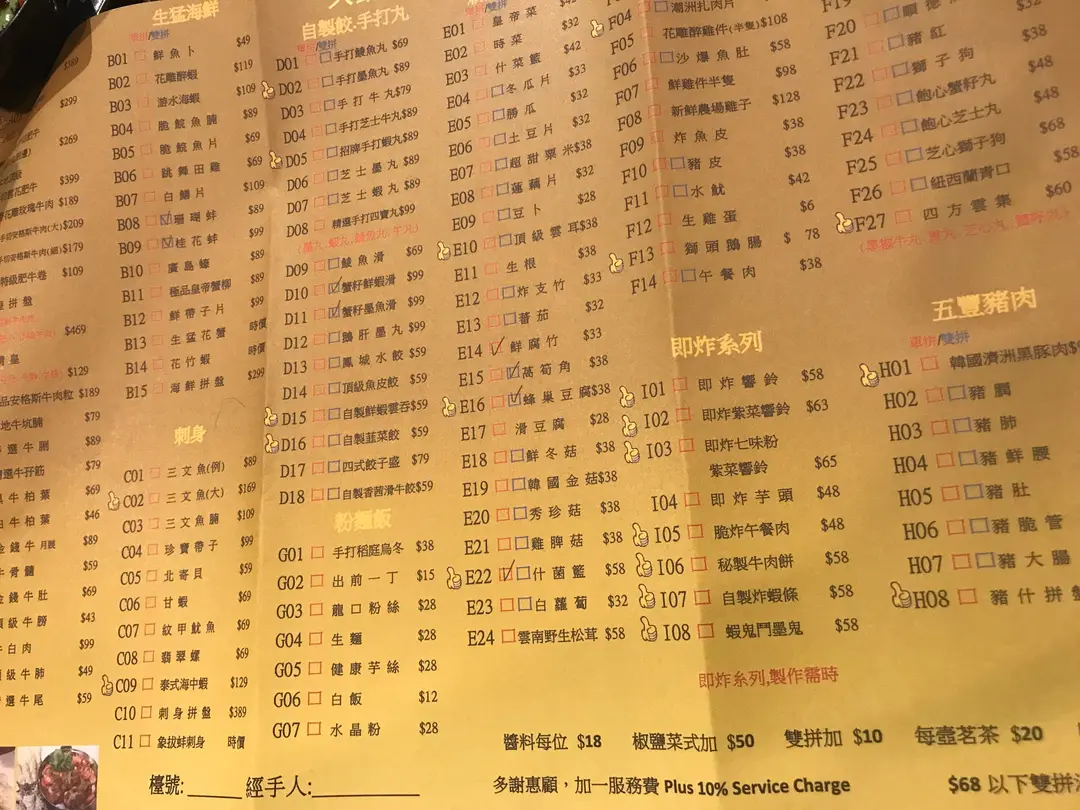 $299
$269
$399
$189
手切安格斯牛肉(大)$209
手切安格斯牛肉(細)$179
特級肥牛卷 $109
$469
$129
品安格斯牛肉粒 $189
地牛坑腩 $79
$89
$79
牛柏葉 $69
牛柏葉 $46
金錢牛月展 $89
牛骨髓 $59
金錢牛肚 $69
頂級牛膀 $43
牛白肉 $99
頂級牛肺 $49
選牛尾 $59
生猛海鮮
單拼/雙拼
B01 鮮魚卜 $49
B02 花雕醉蝦 $119
B03 游水海蝦 $109
B04 脆鯇魚腩 $89
B05 脆鯇魚片 $89
B06 跳舞田雞 $69
B07 白鱔片 $109
B08 珊瑚蚌 $89
B09 桂花蚌 $99
B10 廣島蠔 $89
B11 極品皇帝蟹柳 $89
B12 鮮帶子片 $99
B13 生猛花蟹 時價
B14 花竹蝦 時價
B15 海鮮拼盤 $299
刺身
C01 三文魚(例) $89
C02 三文魚(大) $169
C03 三文魚腩 $109
C04 珍寶帶子 $99
C05 北寄貝 $59
C06 甘蝦 $69
C07 紋甲魷魚 $69
C08 翡翠螺 $69
C09 泰式海中蝦 $129
C10 刺身拼盤 $389
C11 象拔蚌刺身 時價
自製餃.手打丸
單拼/雙拼
D01 手打鯪魚丸 $69
D02 手打墨魚丸 $89
D03 手打牛丸 $79
D04 手打芝士牛丸 $89
D05 招牌手打蝦丸 $89
D06 芝士墨丸 $89
D07 芝士蝦丸 $89
D08 精選手打四寶丸 $99
D09 鯪魚滑 $69
D10 蟹籽鮮蝦滑 $99
D11 蟹籽墨魚滑 $99
D12 鵝肝墨丸 $99
D13 鳳城水餃 $59
D14 頂級魚皮餃 $59
D15 自製鮮蝦雲吞 $59
D16 自製韮菜餃 $59
D17 四式餃子盛 $79
D18 自製香茜滑牛餃 $59
粉麵飯
G01 手打稻庭烏冬 $38
G02 出前一丁 $15
G03 龍口粉絲 $28
G04 生麵 $28
G05 健康芋絲 $28
G06 白飯 $12
G07 水晶粉 $28
E01 皇帝菜
E02 時菜 $32
E03 什菜籃 $42
E04 冬瓜片 $33
E05 勝瓜 $32
E06 土豆片 $32
E07 超甜粟米 $38
E08 蓮藕片 $32
E09 豆卜 $28
E10 頂級雲耳 $38
E11 生根 $38
E12 炸支竹 $33
E13 蕃茄 $32
E14 鮮腐竹 $33
E15 萵筍角 $38
E16 蜂巢豆腐 $38
E17 滑豆腐 $28
E18 鮮冬菇 $38
E19 韓國金菇 $38
E20 秀珍菇 $38
E21 雞脾菇 $38
E22 什菌籃 $58
E23 白蘿蔔 $32
E24 雲南野生松茸 $58
潮洲扎肉片
F04 花雕醉雞件(半隻) $108
F05 沙爆魚肚 $58
F06 鮮雞件半隻 $98
F07 新鮮農場雞子 $128
F08 炸魚皮 $38
F09 豬皮 $38
F10 水魷 $42
F11
F12 生雞蛋 $6
F13 獅頭鵝腸 $ 78
F14 午餐肉 $38
即炸系列
I01 即炸響鈴 $58
I02 即炸紫菜響鈴 $63
I03 即炸七味粉
紫菜響鈴 $65
I04 即炸芋頭 $48
I05 脆炸午餐肉 $48
I06 秘製牛肉餅 $58
I07 自製炸蝦條 $58
I08 蝦鬼鬥墨鬼 $58
即炸系列,製作需時
F19
F20
F21 豬紅
F22 獅子狗
F23 飽心蟹籽丸 $48
F24 飽心芝士丸 $48
F25 芝心獅子狗 $68
F26 紐西蘭青口 $58
F27 四方雲集 $60
五豐豬肉
單拼/雙拼
H01 韓國濟洲黑豚肉
H02 豬膶
H03 豬肺
H04 豬鮮腰
H05 豬肚
H06 豬脆管
H07 豬大腸
H08 豬什拼盤
醬料每位 $18 椒鹽菜式加 $50 雙拼加 $10 每壺茗茶 $20
檯號: 經手人:
多謝惠顧，加一服務費 Plus 10% Service Charge
$68 以下雙拼